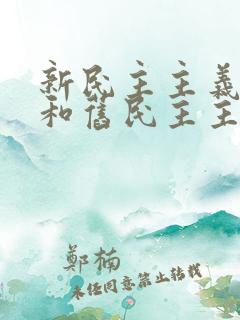 新民主主義
和舊民主主
鄭楠
未经同意禁止转载